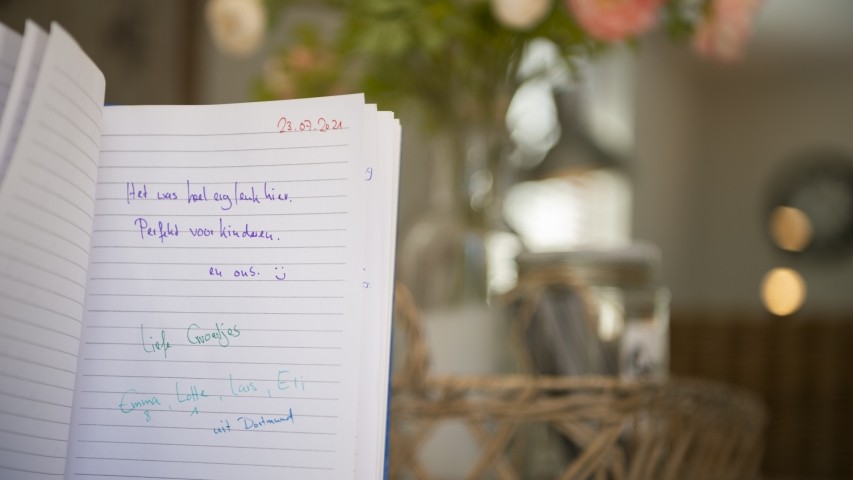 23.07.2021
Het was heel erg leuk hier.
Perfekt voor kinderen.
en ons. :)
Liefe Groetjes
Emma, Lotte, Lars, Eti
8 1
uit Dortmund